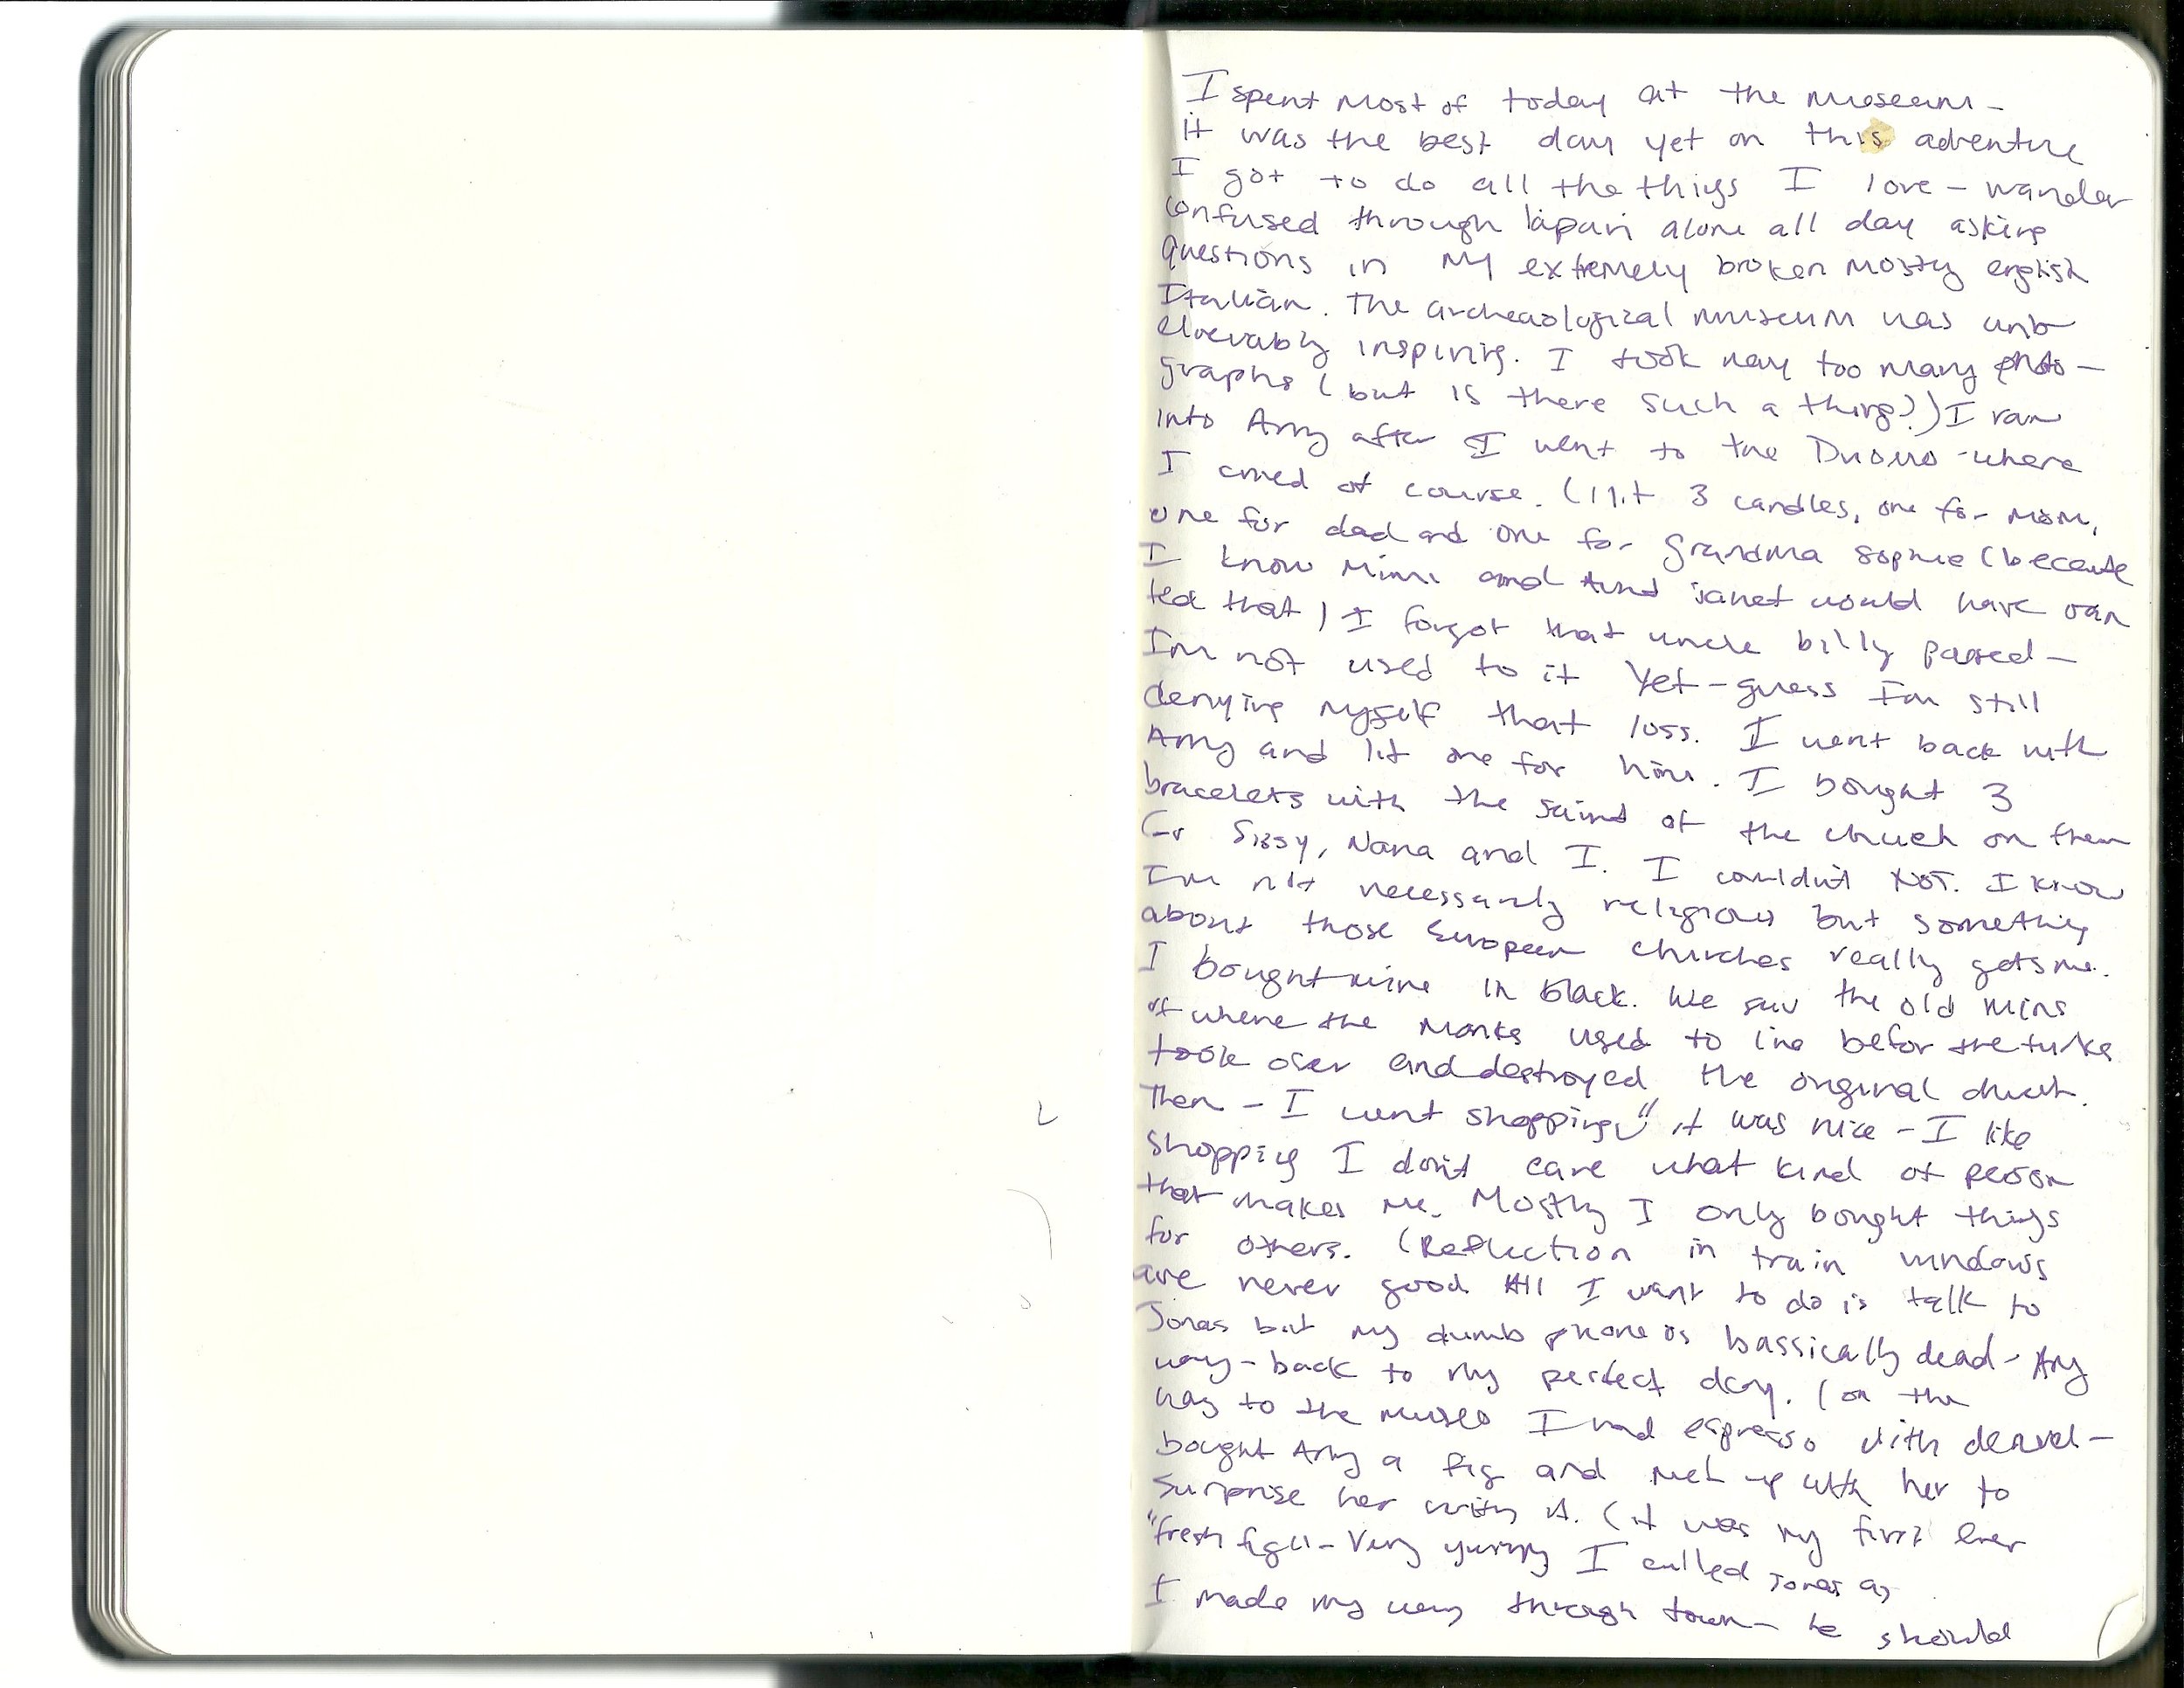 I spent most of today at the museum -
it was the best day yet on this adventure
I got to do all the things I love - wander
confused through lipari alone all day asking
questions in my extremely broken mostly english
Italian. The archeaological museum was unb
elievably inspiring. I took way too many photo -
graphs (but is there such a thing?) I ran
into Amy after I went to the Duomo - where
I cried of course. (I lit 3 candles, one for mom,
one for dad and one for grandma sophie (because
I know Mimi and Aunt janet would have wan
ted that) I forgot that uncle billy passed -
I'm not used to it yet - guess I'm still
denying myself that loss. I went back with
Amy and lit one for him. I bought 3
bracelets with the saint of the church on them
for Sissy, Nana and I. I couldn't NOT. I know
I'm not necessarily religious but something
about those European churches really gets me.
I bought mine in black. We saw the old ruins
of where the monks used to live befor the turks
took over and destroyed the original church.
Then - I went shopping" it was nice - I like
shopping I don't care what kind of person
that makes me. Mostly I only bought things
for others. (Reflection in train windows
are never good All I want to do is talk to
Jonas but my dumb phone is bassically dead - Any
way - back to my perfect day. (on the
way to the museo I had espresso with
bought Amy a fig and met up with her to
surprise her with it. (it was my first ever
"fresh fig" - Very yummy I called Jonas as
I made my way through town - he should